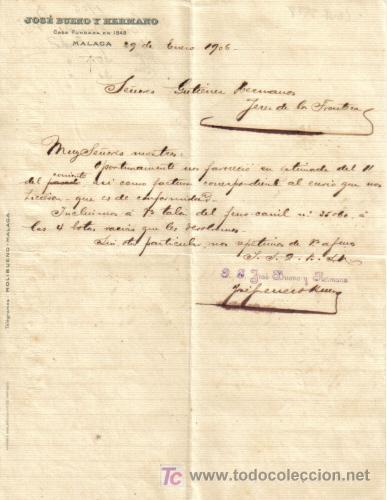 JOSÉ BUENO Y HERMANO
CASA FUNDADA EN 1843
MALAGA
29 de Enero 1906
Señores Gutiérrez Hermanos
Jerez de la Frontera
Muy Señores nuestros:
Oportunamente nos favoreció su estimada del
corriente
del pasado, así como factura correspondiente al envío que nos
hicieron que es de conformidad.
Incluimos a Vds talón del ferro-carril nº 3560, a
las 4 botas vacías que les devolvemos.
Sin otro particular nos repetimos de Vds afmos
S. S. Q. B. S. M.
P. P. José Bueno y Hermano
Telegramas: MOLIBUENO-MALAGA
TC
todocoleccion
www.todocoleccion.net